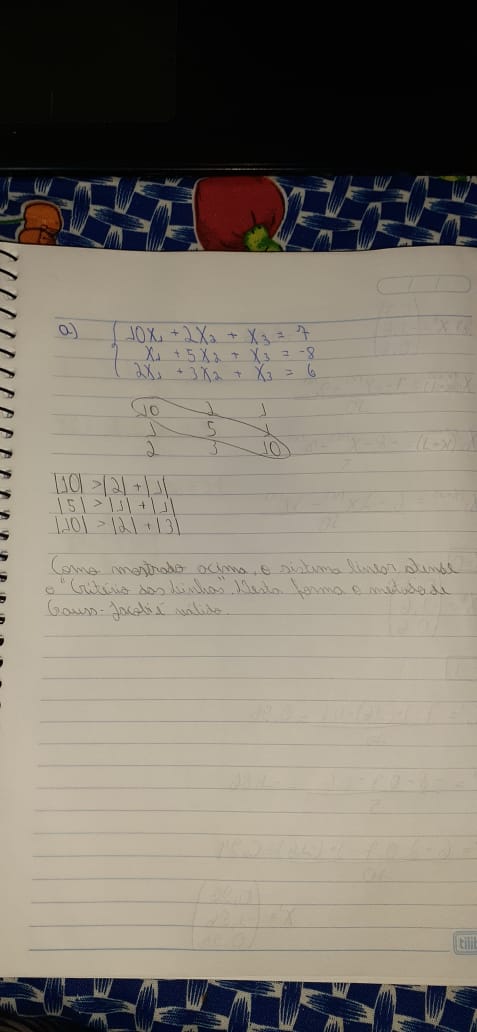 a) { 10x₁ + 2x₂ + x₃ = 7
x₁ + 5x₂ + x₃ = -8
2x₁ + 3x₂ + x₃ = 6
10 2 1
1 5 1
2 3 10
|10| > |2| + |1|
|5| > |1| + |1|
|10| > |2| + |3|
Como mostrado acima, o sistema linear atende
o "Critério das Linhas". Desta forma o método de
Gauss-Jacobi é valido.
tili